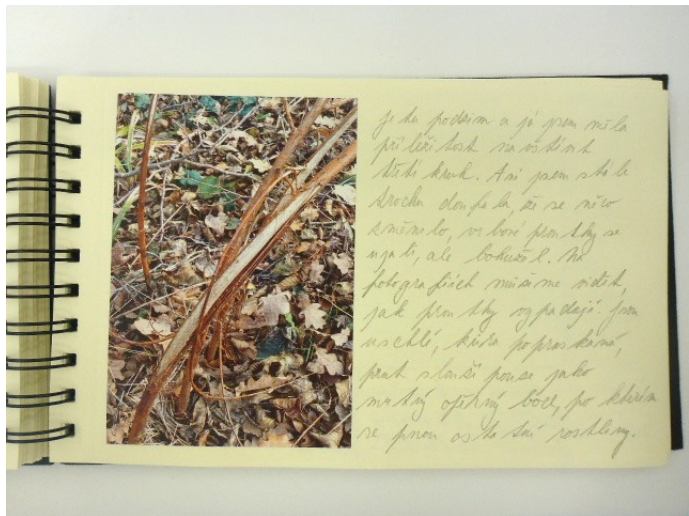 Je tu podzim a já jsem měla
příležitost navštívit
třetí kruh. Ani jsem stále
trochu doufala, že se něco
změnilo, vrbové proutky se
ujali, ale bohužel. Na
fotografiích můžeme vidět,
jak proutky vypadají. Jsou
uschlé, kůra popraskaná,
prut slouží pouze jako
mrtvý opěrný bod, po kterém
se pnou ostatní rostliny.